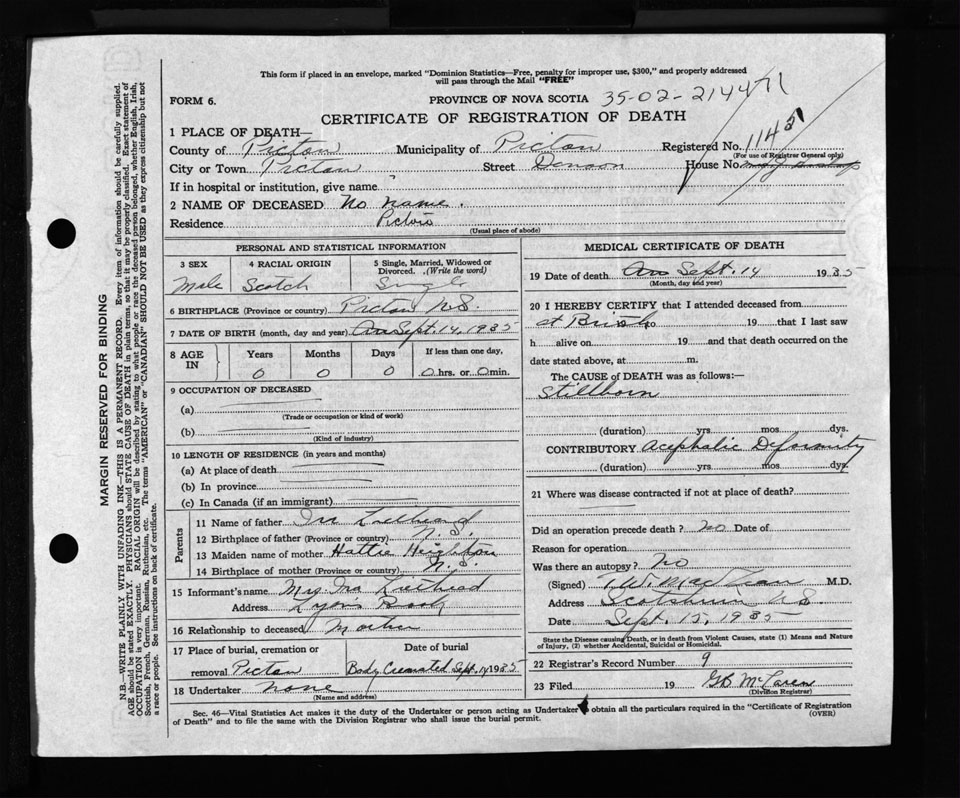 This form if placed in an envelope, marked "Dominion Statistics—Free, penalty for improper use, $300," and properly addressed
will pass through the Mail "FREE"
FORM 6.
PROVINCE OF NOVA SCOTIA 35-02-214471
CERTIFICATE OF REGISTRATION OF DEATH
1 PLACE OF DEATH—
County of Pictou Municipality of Pictou Registered No. 1145
(For use of Registrar General only)
City or Town Pictou Street Denoon House No.
If in hospital or institution, give name
2 NAME OF DECEASED No name.
Residence Pictou
(Usual place of abode)
PERSONAL AND STATISTICAL INFORMATION
3 SEX 4 RACIAL ORIGIN 5 Single, Married, Widowed or
Divorced. (Write the word)
Male Scotch Single
6 BIRTHPLACE (Province or country) Pictou N.S.
7 DATE OF BIRTH (month, day and year) Sept. 14, 1935
8 AGE IN Years Months Days If less than one day,
0 0 0 0 hrs. or 0 min.
9 OCCUPATION OF DECEASED
(a)
(Trade or occupation or kind of work)
(b)
(Kind of industry)
10 LENGTH OF RESIDENCE (in years and months)
(a) At place of death
(b) In province
(c) In Canada (if an immigrant)
Parents
11 Name of father Ira
12 Birthplace of father (Province or country) N.S.
13 Maiden name of mother Hattie Heighton
14 Birthplace of mother (Province or country) N.S.
15 Informant's name Mrs. Ira
Address Lyons Brook
16 Relationship to deceased Mother
17 Place of burial, cremation or Date of burial
removal Pictou Body Cremated Sept. 14 1935
18 Undertaker none
(Name and address)
MEDICAL CERTIFICATE OF DEATH
19 Date of death Sept. 14 1935
(Month, day and year)
20 I HEREBY CERTIFY that I attended deceased from
at Birth to 19 that I last saw
h alive on 19 and that death occurred on the
date stated above, at m.
The CAUSE of DEATH was as follows:—
Stillborn
(duration) yrs. mos. dys.
CONTRIBUTORY Acephalic Deformity
(duration) yrs. mos. dys.
21 Where was disease contracted if not at place of death?
Did an operation precede death? No Date of
Reason for operation
Was there an autopsy? No
(Signed) MacLean M.D.
Address Scotsburn N.S.
Date Sept. 15, 1935
State the Disease causing Death, or in death from Violent Causes, state (1) Means and Nature
of Injury, (2) whether Accidental, Suicidal or Homicidal.
22 Registrar's Record Number 9
23 Filed 19 GB McLaren
(Division Registrar)
Sec. 46—Vital Statistics Act makes it the duty of the Undertaker or person acting as Undertaker to obtain all the particulars required in the "Certificate of Registration
of Death" and to file the same with the Division Registrar who shall issue the burial permit. (OVER)
MARGIN RESERVED FOR BINDING
N.B.—WRITE PLAINLY WITH UNFADING INK—THIS IS A PERMANENT RECORD. Every item of information should be carefully supplied.
AGE should be stated EXACTLY. PHYSICIANS should STATE CAUSE OF DEATH in plain terms, so that it may be properly classified. Exact statement of
OCCUPATION is very important. RACIAL ORIGIN will be described by stating to what people or race the deceased person belonged, whether English, Irish,
Scottish, French, German, Russian, Ruthenian, etc. The terms "AMERICAN" or "CANADIAN" SHOULD NOT BE USED as they express citizenship but not
a race or people. See instructions on back of certificate.